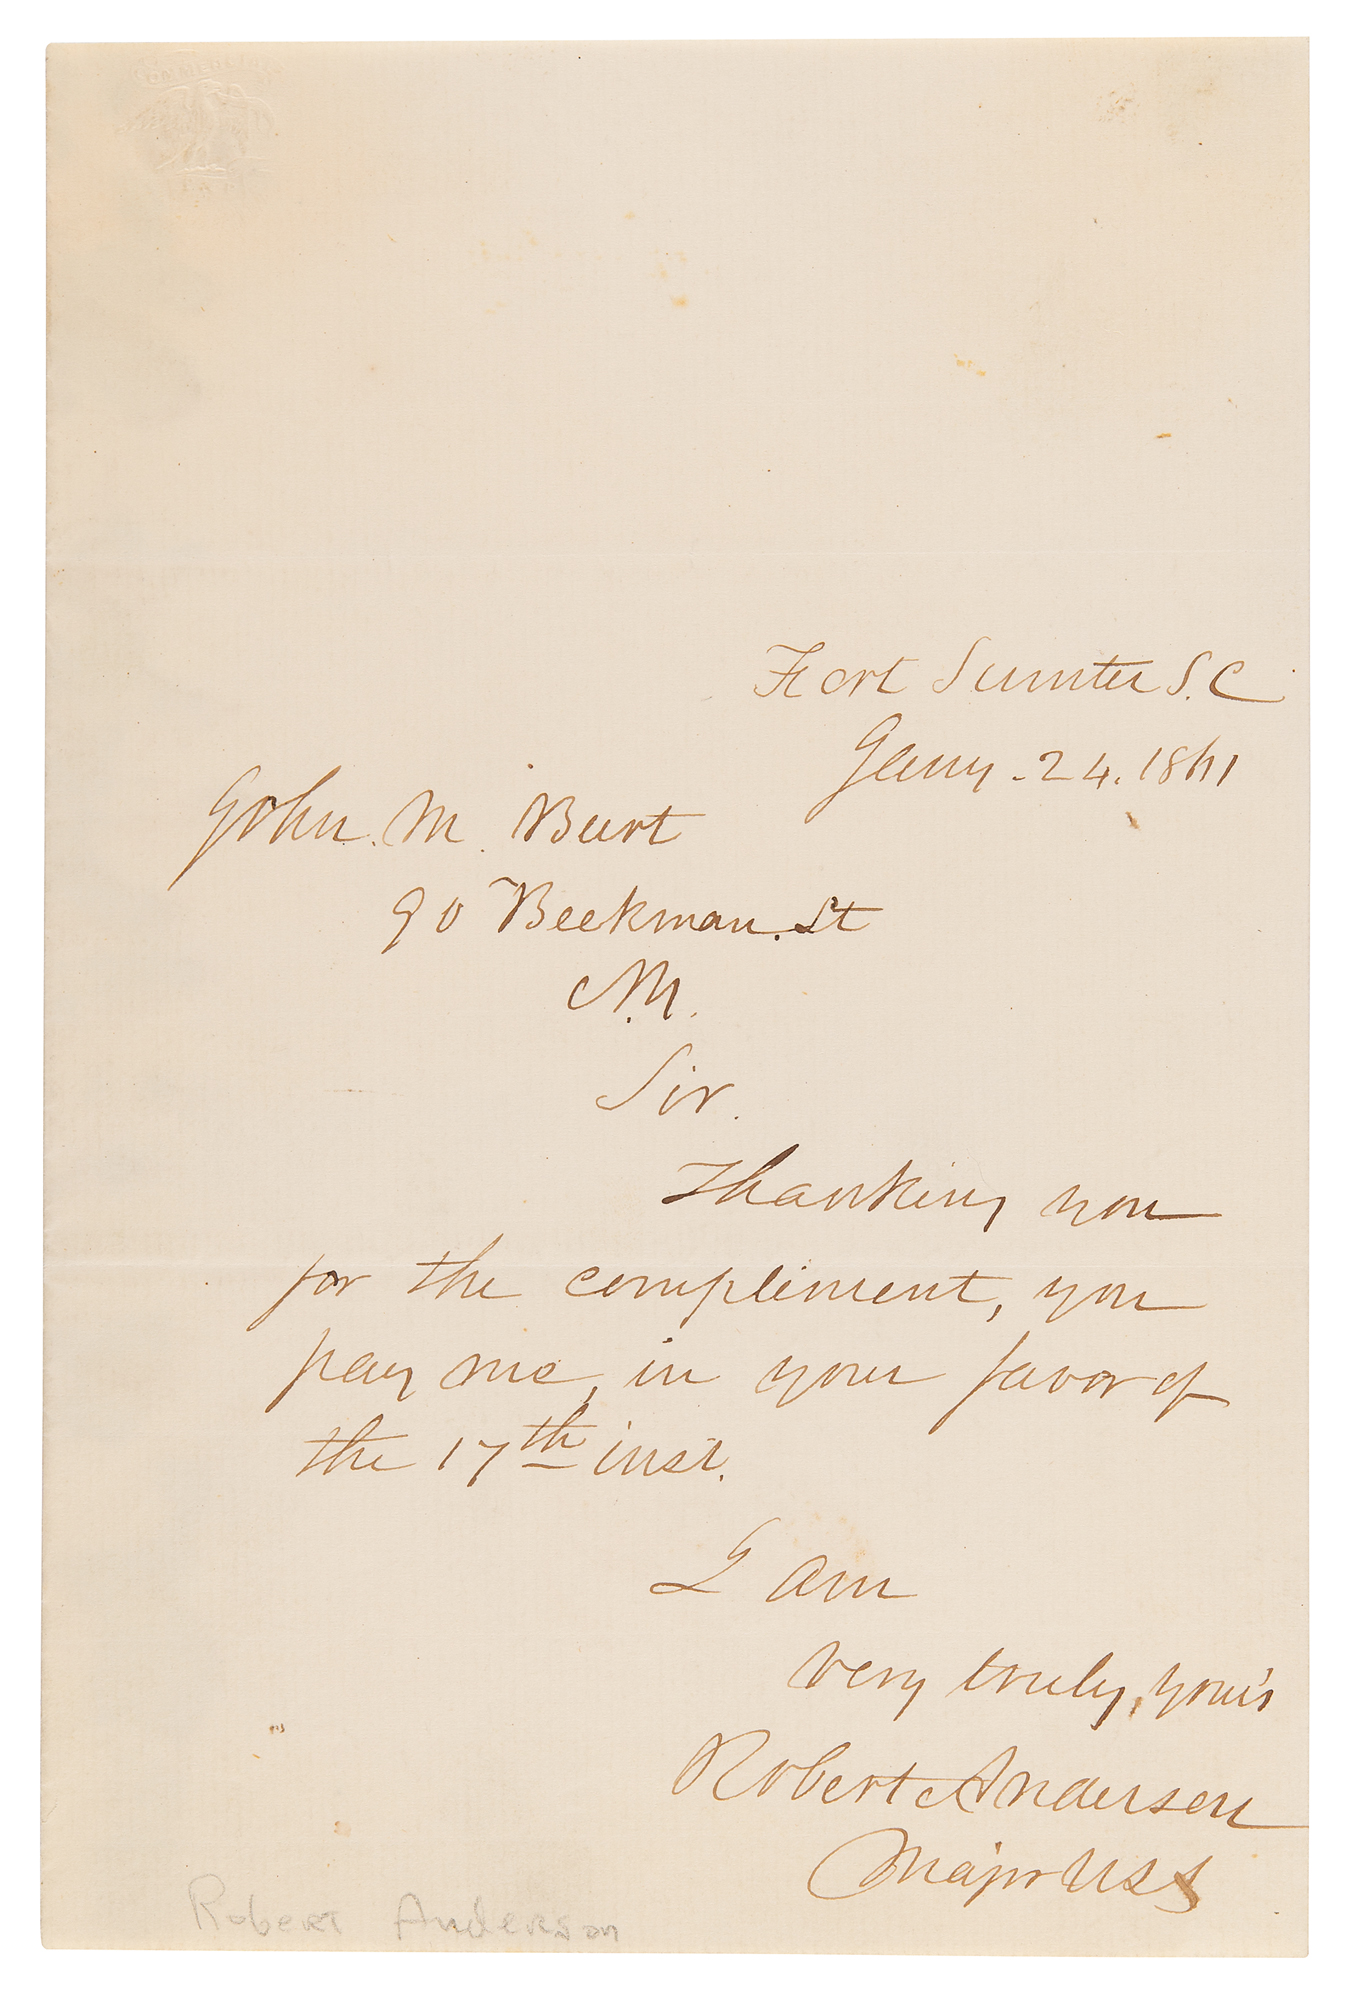 COMMERCIAL
Fort Sumter S.C
Jany. 24. 1861
John. M. Burt
90 Beekman. St
N.Y.
Sir.
Thanking you
for the compliment, you
pay me, in your favor of
the 17th inst.
I am
very truly, your's
Robert Anderson
Major USA
Robert Anderson